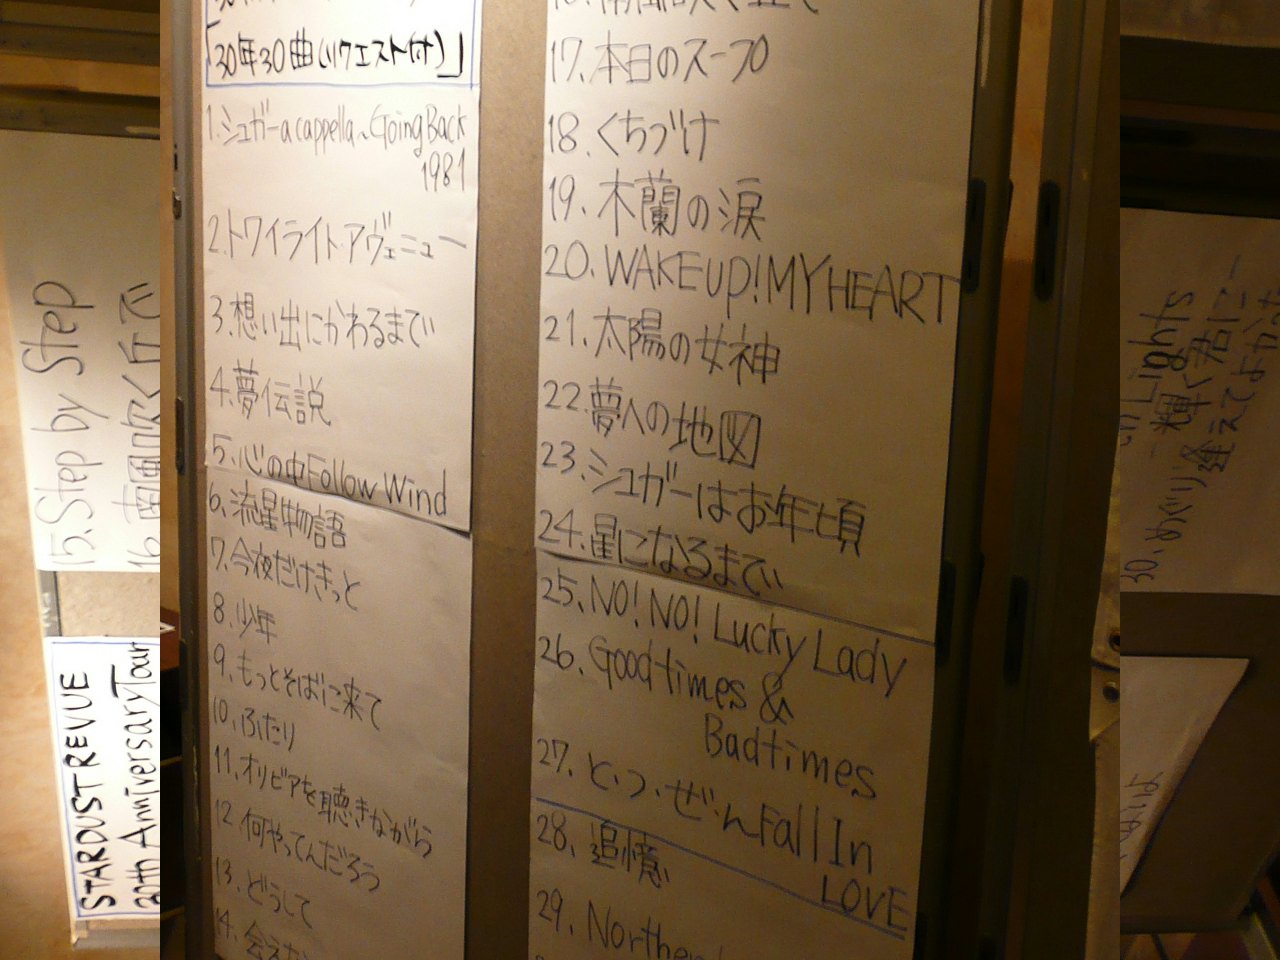 「30年30曲(リクエスト付)」
1.シュガーa cappella~Going Back
1981
2.トワイライト・アヴェニュー
3.想い出にかわるまで
4.夢伝説
5.心の中Follow Wind
6.流星物語
7.今夜だけきっと
8.少年
9.もっとそばに来て
10.ふたり
11.オリビアを聴きながら
12.何やってんだろう
13.どうして
14.会えな
17.本日のスープ
18.くちづけ
19.木蘭の涙
20.WAKE UP!MY HEART
21.太陽の女神
22.夢への地図
23.シュガーはお年頃
24.星になるまで
25.NO!NO!Lucky Lady
26.Goodtimes &
Badtimes
27.と・つ・ぜ・ん Fall In
LOVE
28.追憶
29.Northe
15.Step by Step
16.南風吹く丘で
STARDUST REVUE
30th Anniversary Tour
Lights
輝く君に
30.めぐり逢えてよかった